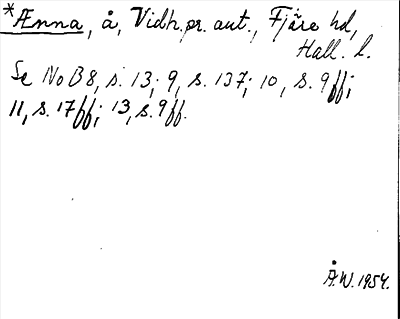 *Ænna, å, Vidh. pr. aut., Fjäre hd,
Hall. l.
Se NoB 8, s. 13; 9, s. 137; 10, s. 9 ff;
11, s. 17 ff; 13, s. 9 ff.
Å.W. 1954.